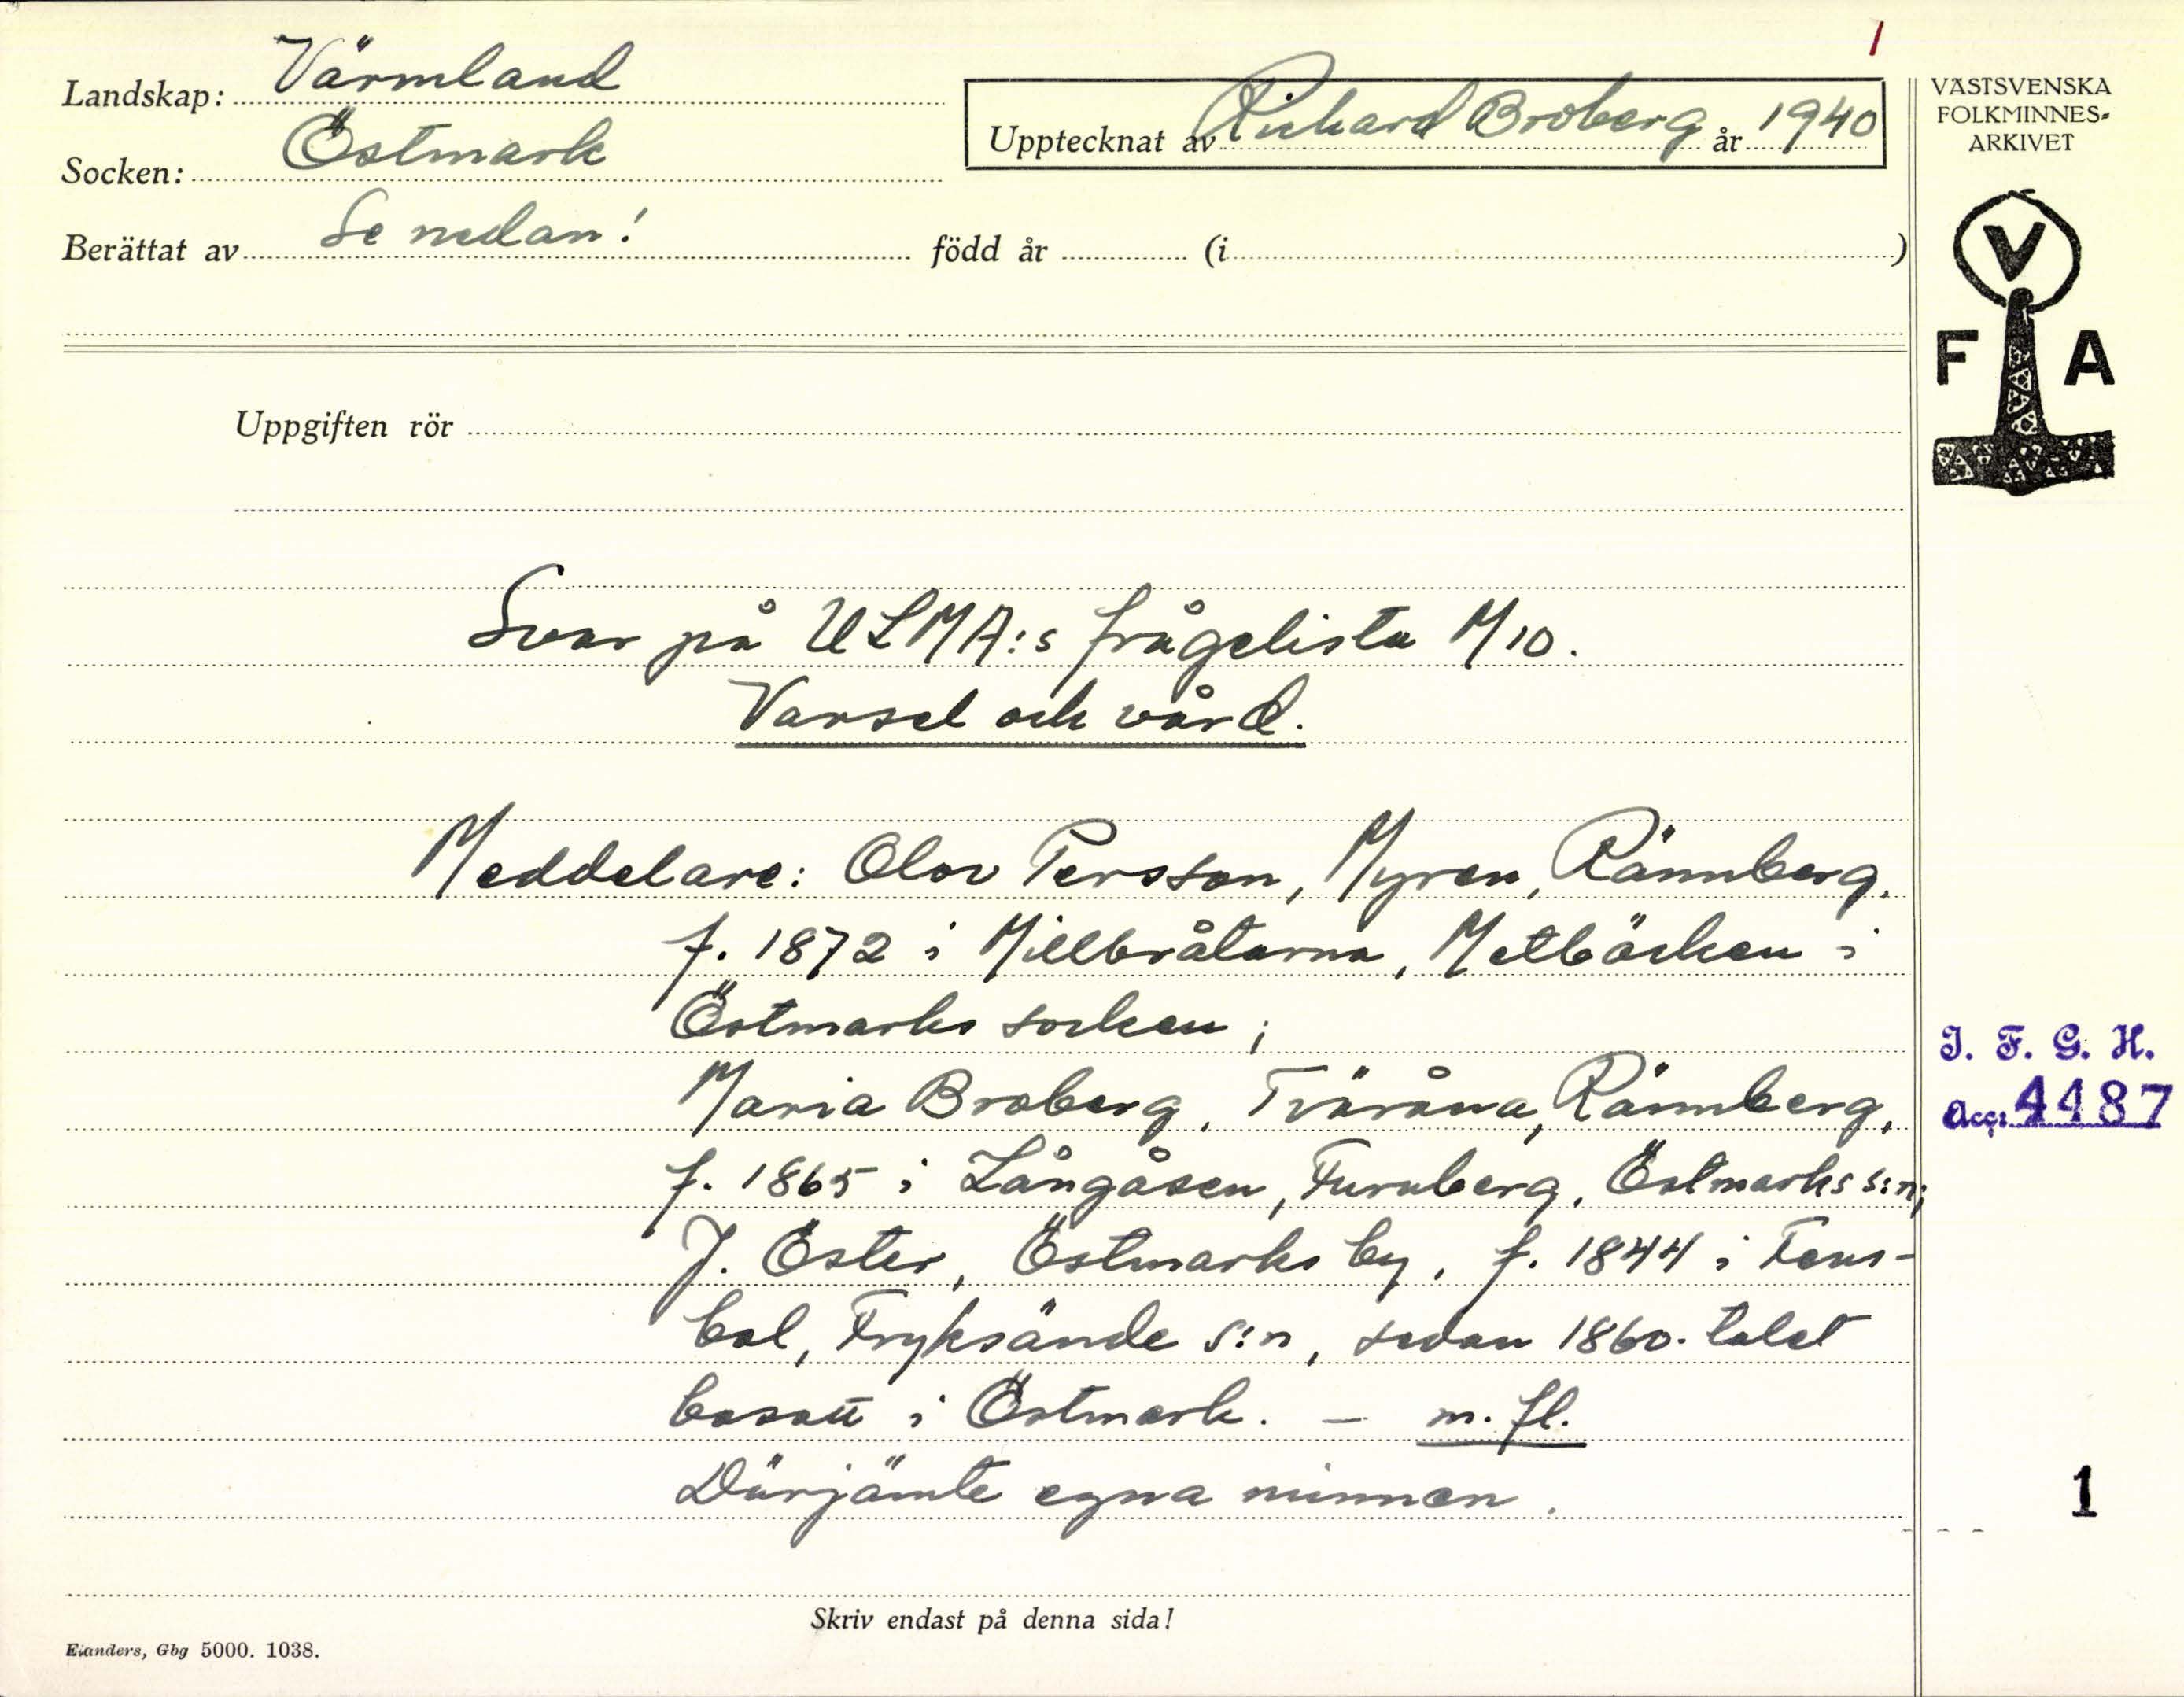 1
Landskap: Värmland
Socken: Östmark
Berättat av Se nedan! född år (i )
Upptecknat av Richard Broberg år 1940
VÄSTSVENSKA
FOLKMINNES-
ARKIVET
V
F A
Uppgiften rör
Svar på ULMA:s frågelista M10.
Varsel och vård.
Meddelare: Olov Persson, Myren, Rännberg,
f. 1872 i Millbråtarna, Metbäcken i
Östmarks socken;
Maria Broberg, Tväråna, Rännberg,
f. 1865 i Långåsen, Furuberg, Östmarks s:n;
J. Öster, Östmarks by, f. 1844 i Fens-
bol, Fryksände s:n, sedan 1860-talet
bosatt i Östmark. — m. fl.
Därjämte egna minnen.
I. F. G. H.
Acc: 4487
1
Skriv endast på denna sida!
Elanders, Gbg 5000. 1038.